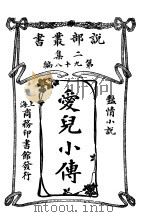 說部叢書
二集
第九十八編
豔情小說
愛兒小傳
上海
商務印書館發行
www.mtoou.info